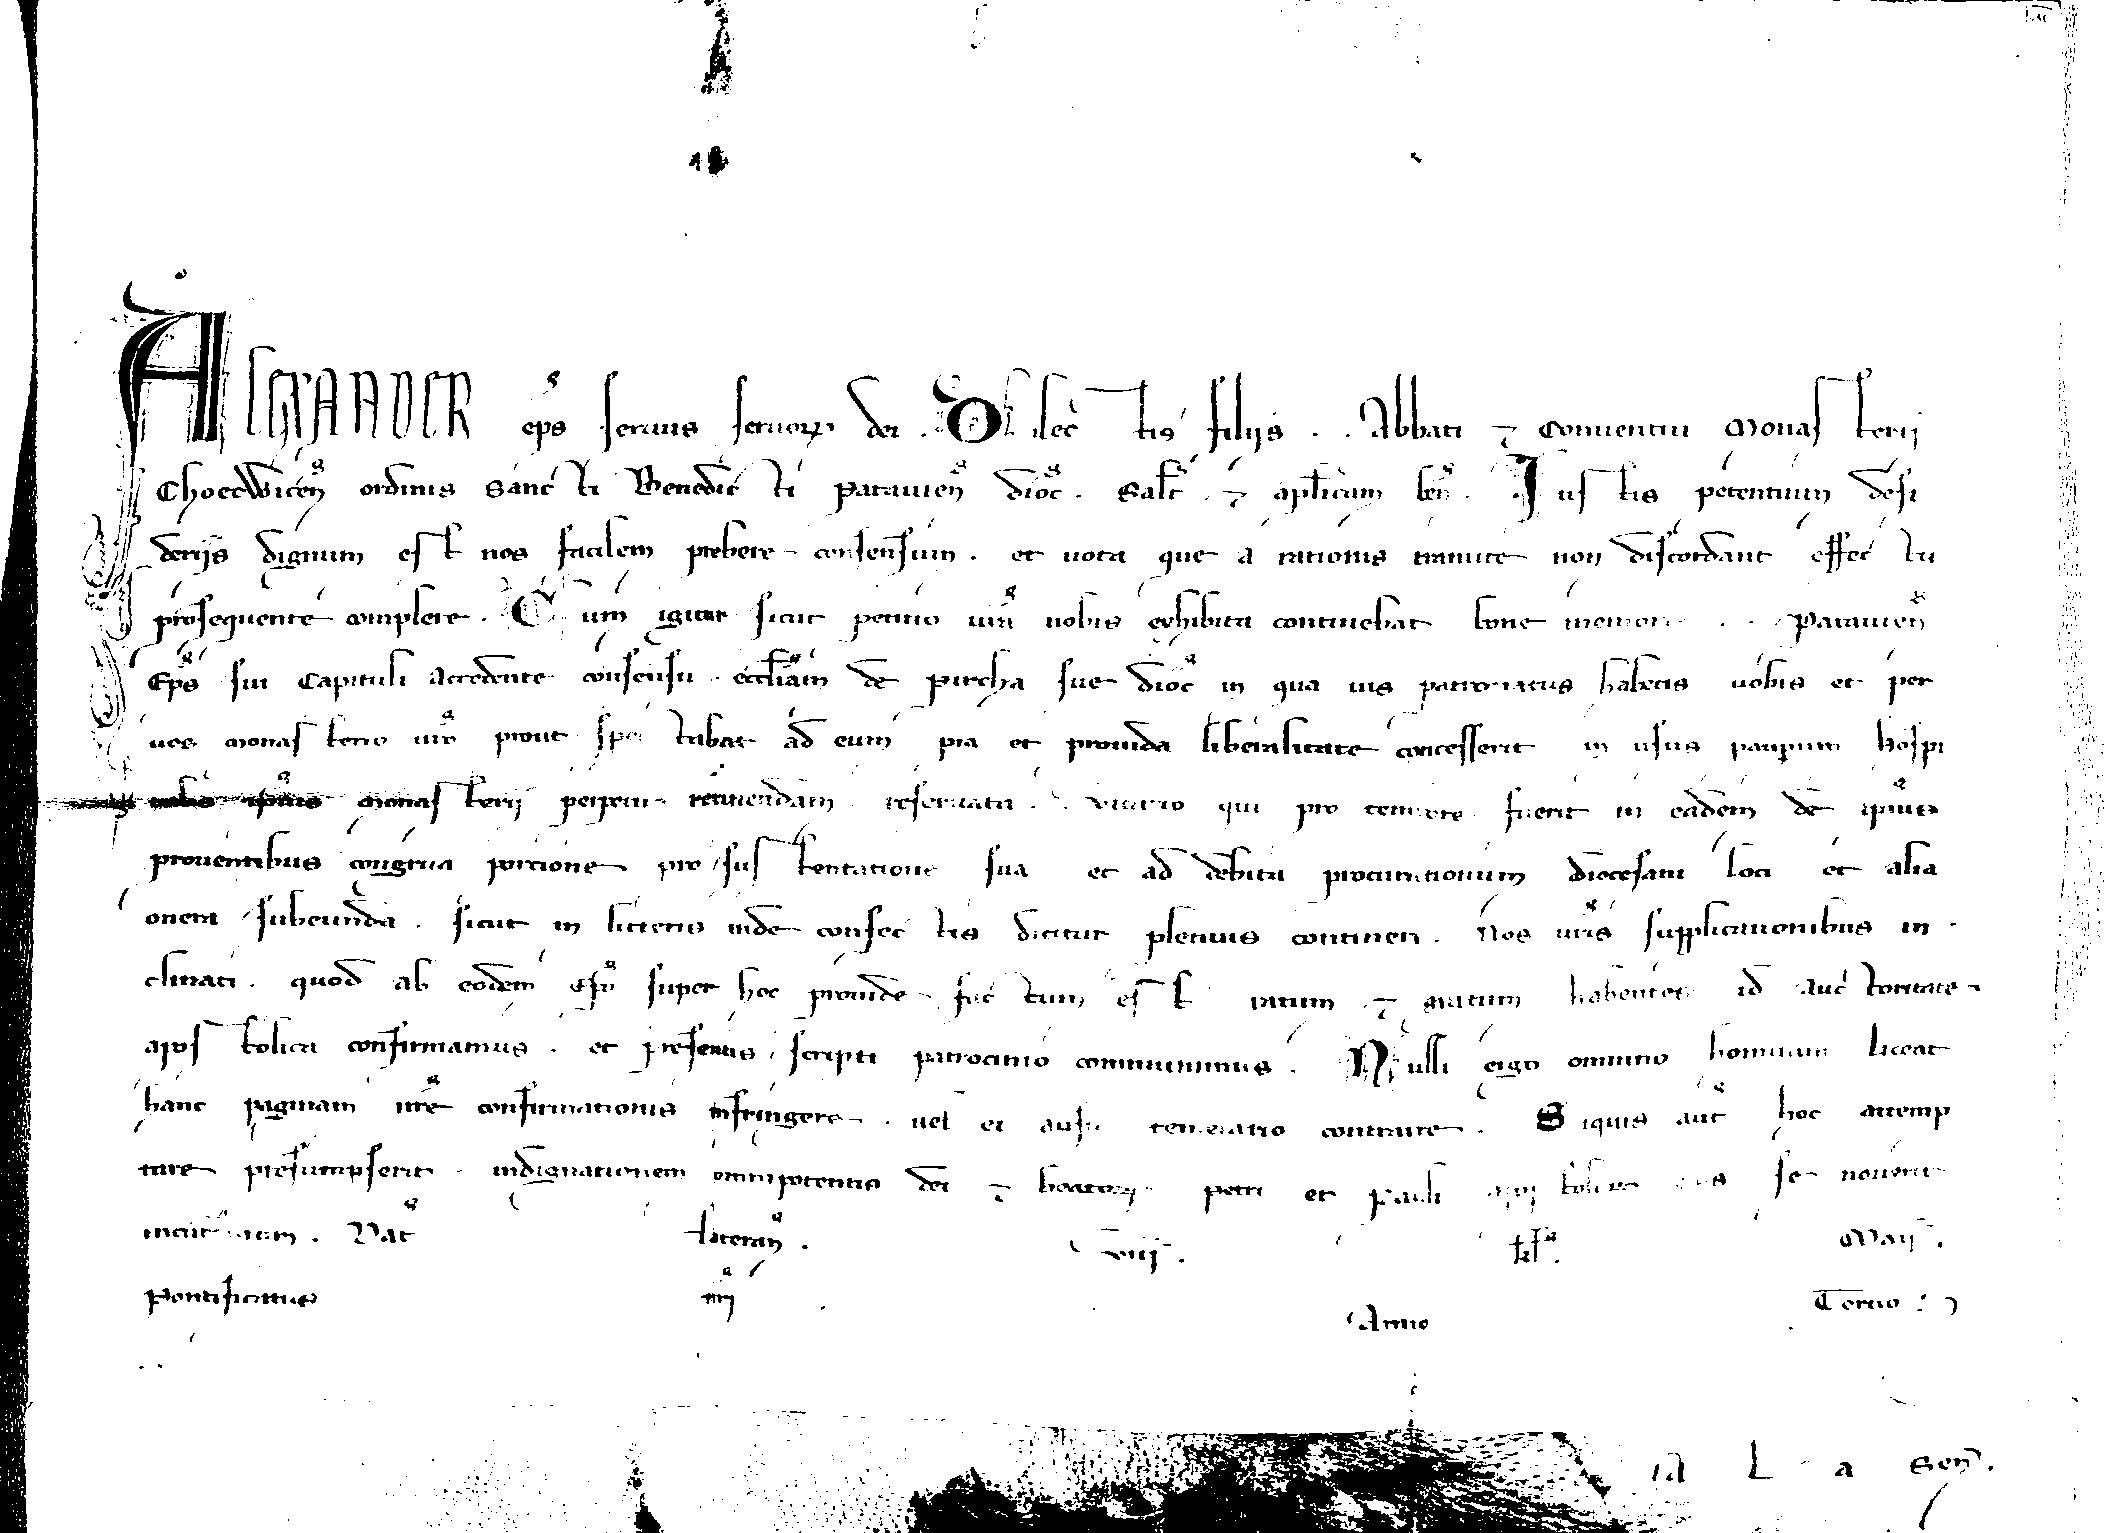 ALEXANDER ep̄s seruus seruoꝝ dei. Dilectis filijs .. Abbati ⁊ Conuentui Monasterij
Choetwicen̄ ordinis Sancti Benedicti Patauien̄ dioc̄. Sal̄t ⁊ apl̄icam ben̄. Iustis petentium desi
derijs dignum est nos facilem prebere consensum. et uota que a rationis tramite non discordant effectu
prosequente complere. Cum igitur sicut petitio ur̄a nobis exhibita continebat bone memorie .. Patauien̄
Ep̄s sui Capituli accedente consensu eccl̄iam de Pircha sue dioc̄ in qua ius patronatus habetis uobis et per
uos monasterio ur̄o prout spectabat ad eum pia et prouida liberalitate concesserit in usus pauꝑum hospi
monasterij perpetuo retinendam reseruata . vicario qui pro tempore fuerit in eadem de ip̄ius
prouentibus congrua portione pro sustentatione sua et ad debita procurationum diocesani loci et alia
onera subeunda. sicut in litteris inde confectis dicitur plenius contineri. Nos ur̄is supplicationibus in
clinati. quod ab eodem Ep̄o super hoc prouide factum est ratum ⁊ gratum habentes id auctoritate
apostolica confirmamus. et presentis scripti patrocinio communimus. Nulli ergo omnino hominum liceat
hanc paginam nr̄e confirmationis infringere. uel ei ausu temerario contraire. Siquis aut̄ hoc attemp
tare presumpserit indignationem omnipotentis dei ⁊ beatoꝝ Petri et Pauli apostolorum eius se nouerit
incursurum. Dat̄ Lateran̄. viij. kl̄. Maij.
Pontificatus nr̄i Anno Tertio